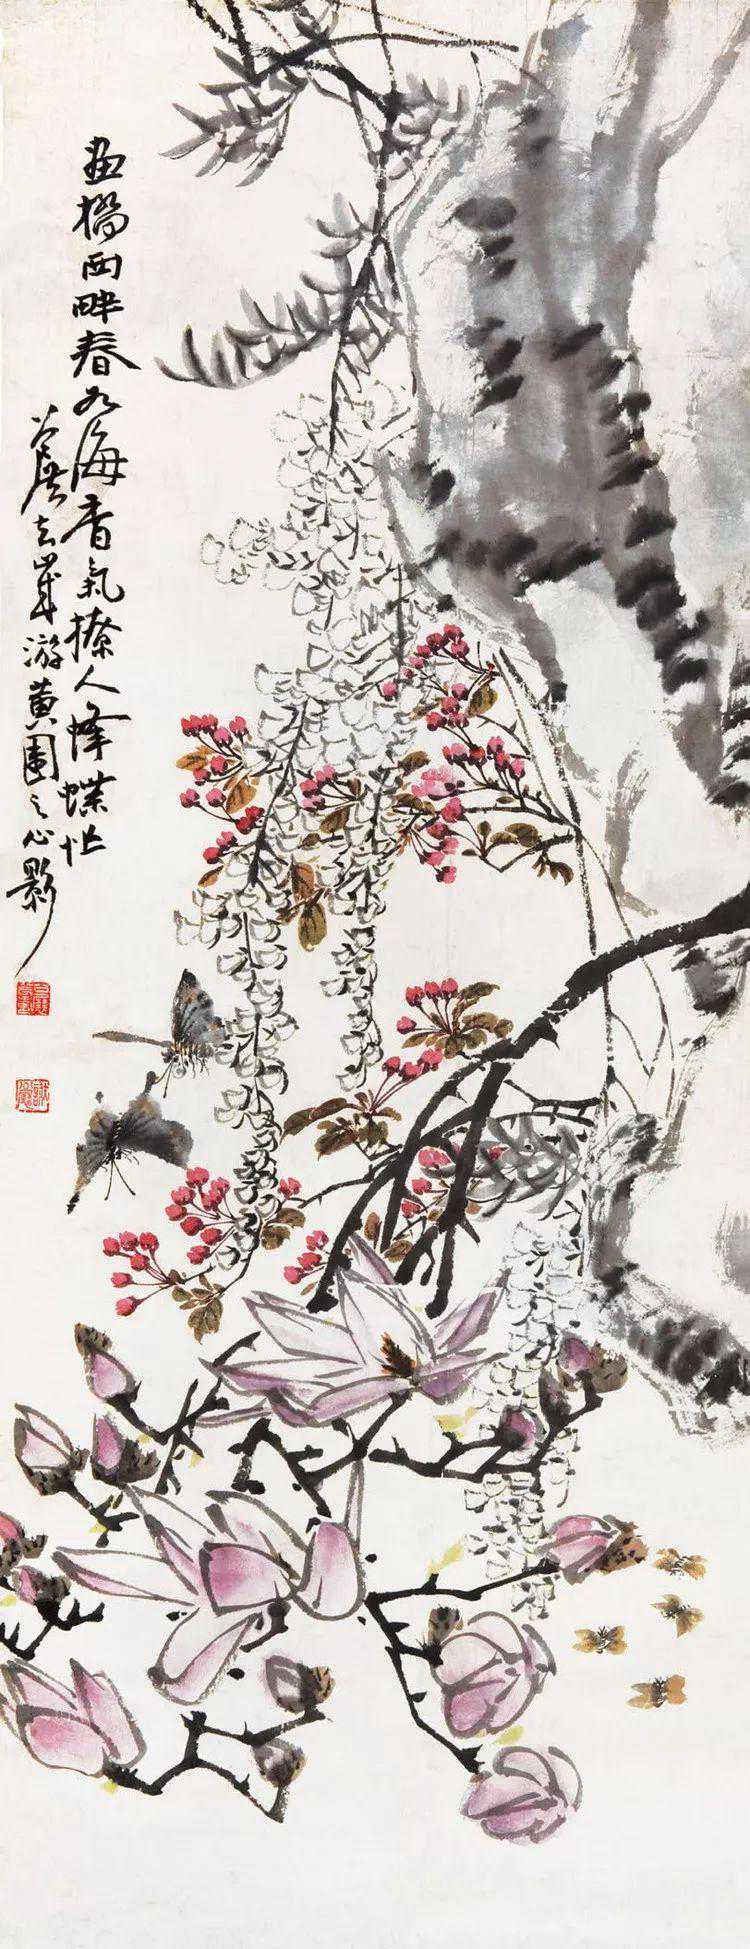 畫橋西畔春如海香氣撩人蜂蝶忙
去歲游黃園之心影